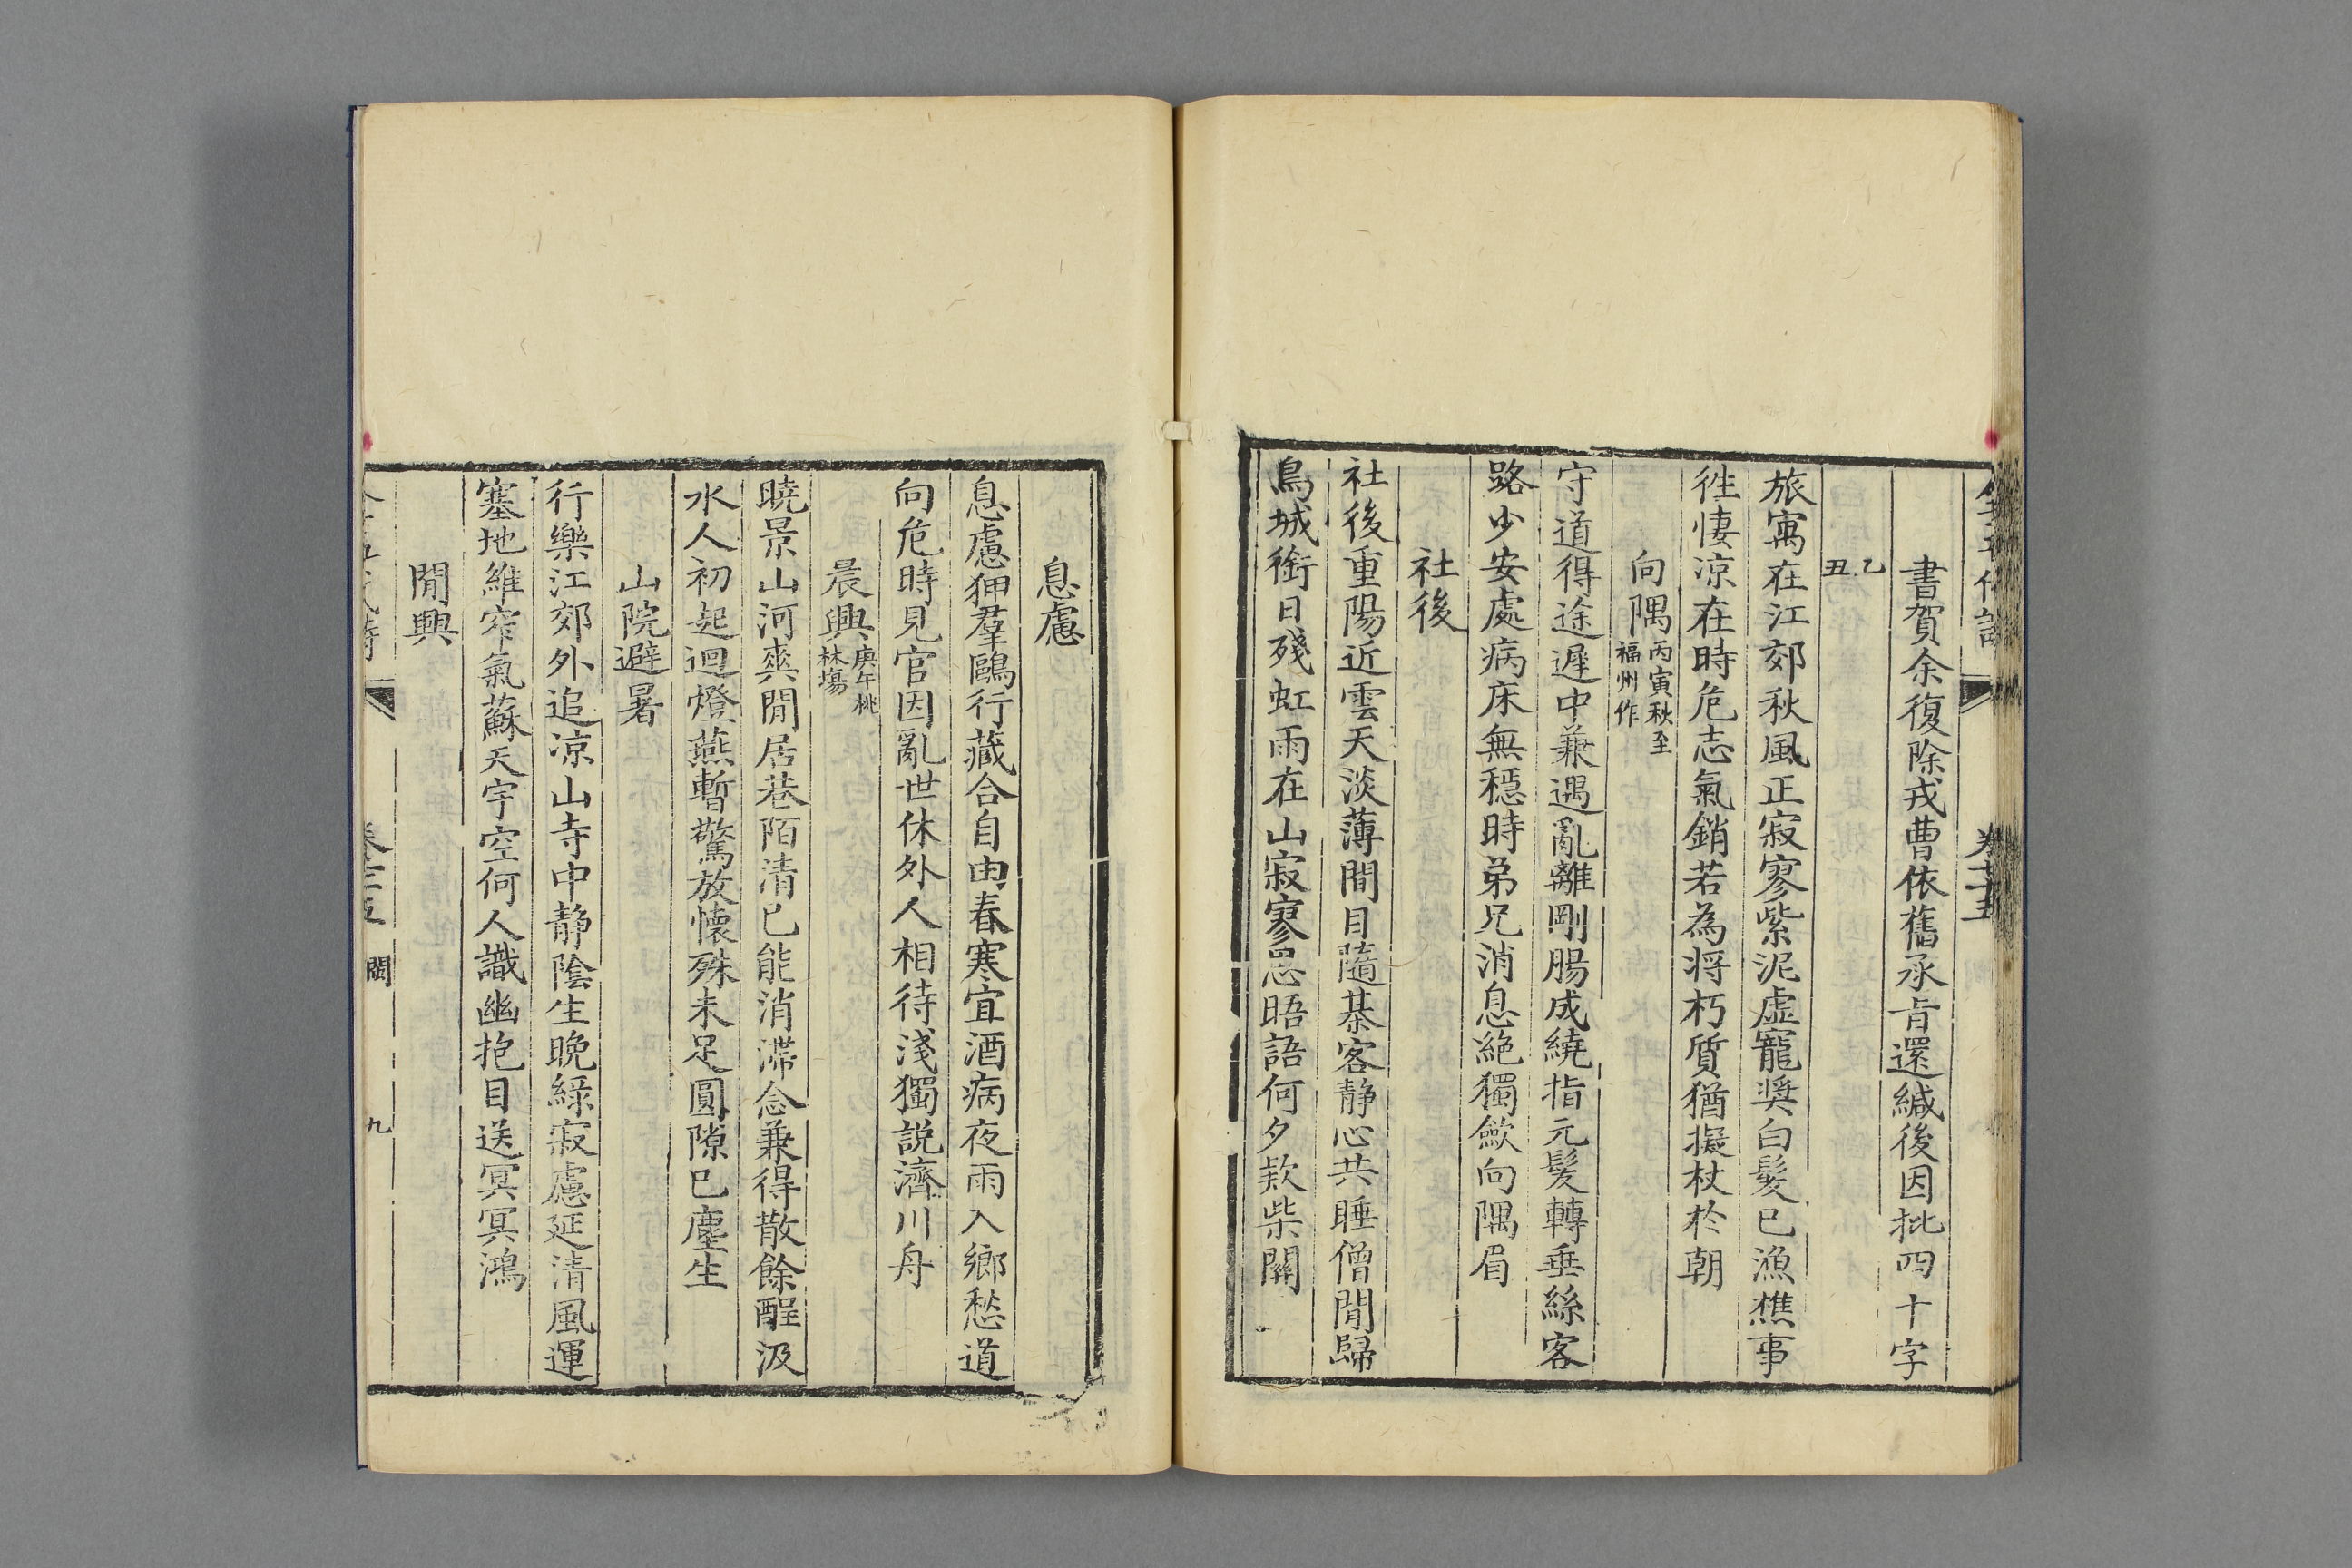 書賀余復除戎曹依舊承旨還緘後因批四十字
乙丑
旅寓在江郊秋風正寂寥紫泥虛寵奬白髪已漁樵事
徃悽凉在時危志氣銷若為将朽質猶擬杖於朝
向隅丙寅秋至福州作
守道得途遲中兼遇亂離剛腸成繞指元髪轉垂絲客
路少安處病床無穩時弟兄消息絶獨歛向隅眉
社後
社後重陽近雲天淡薄間目隨棊客静心共睡僧閒歸
鳥城銜日殘虹雨在山寂寥思晤語何夕欵柴關
息慮
息慮狎羣鷗行藏合自由春寒宜酒病夜雨入鄉愁道
向危時見官因亂世休外人相待淺獨説濟川舟
晨興庚午桃林塲
曉景山河爽閒居巷陌清已能消滯念兼得散餘酲汲
水人初起迴燈燕暫驚放懷殊未足圓隙已塵生
山院避暑
行樂江郊外追凉山寺中静隂生晩緑寂慮延清風運
塞地維窄氣蘇天宇空何人識幽抱目送冥冥鴻
閒興
卷三五 閩 九